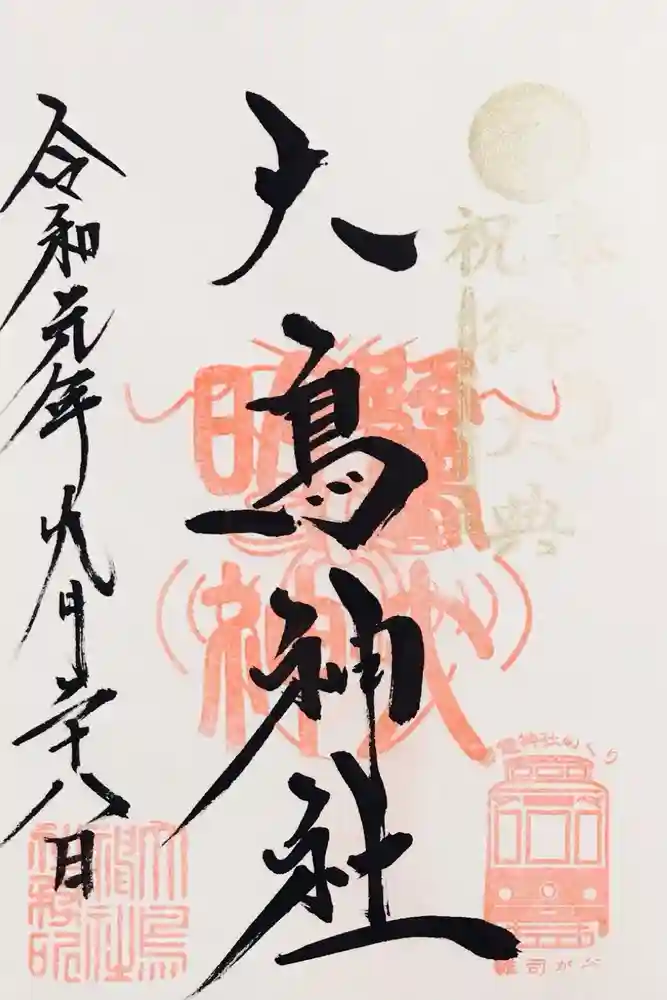 奉祝
御大典
大鳥神社
鷺大
明神
令和元年九月二十八日
電神社めぐり
雑司が谷
大鳥
神社